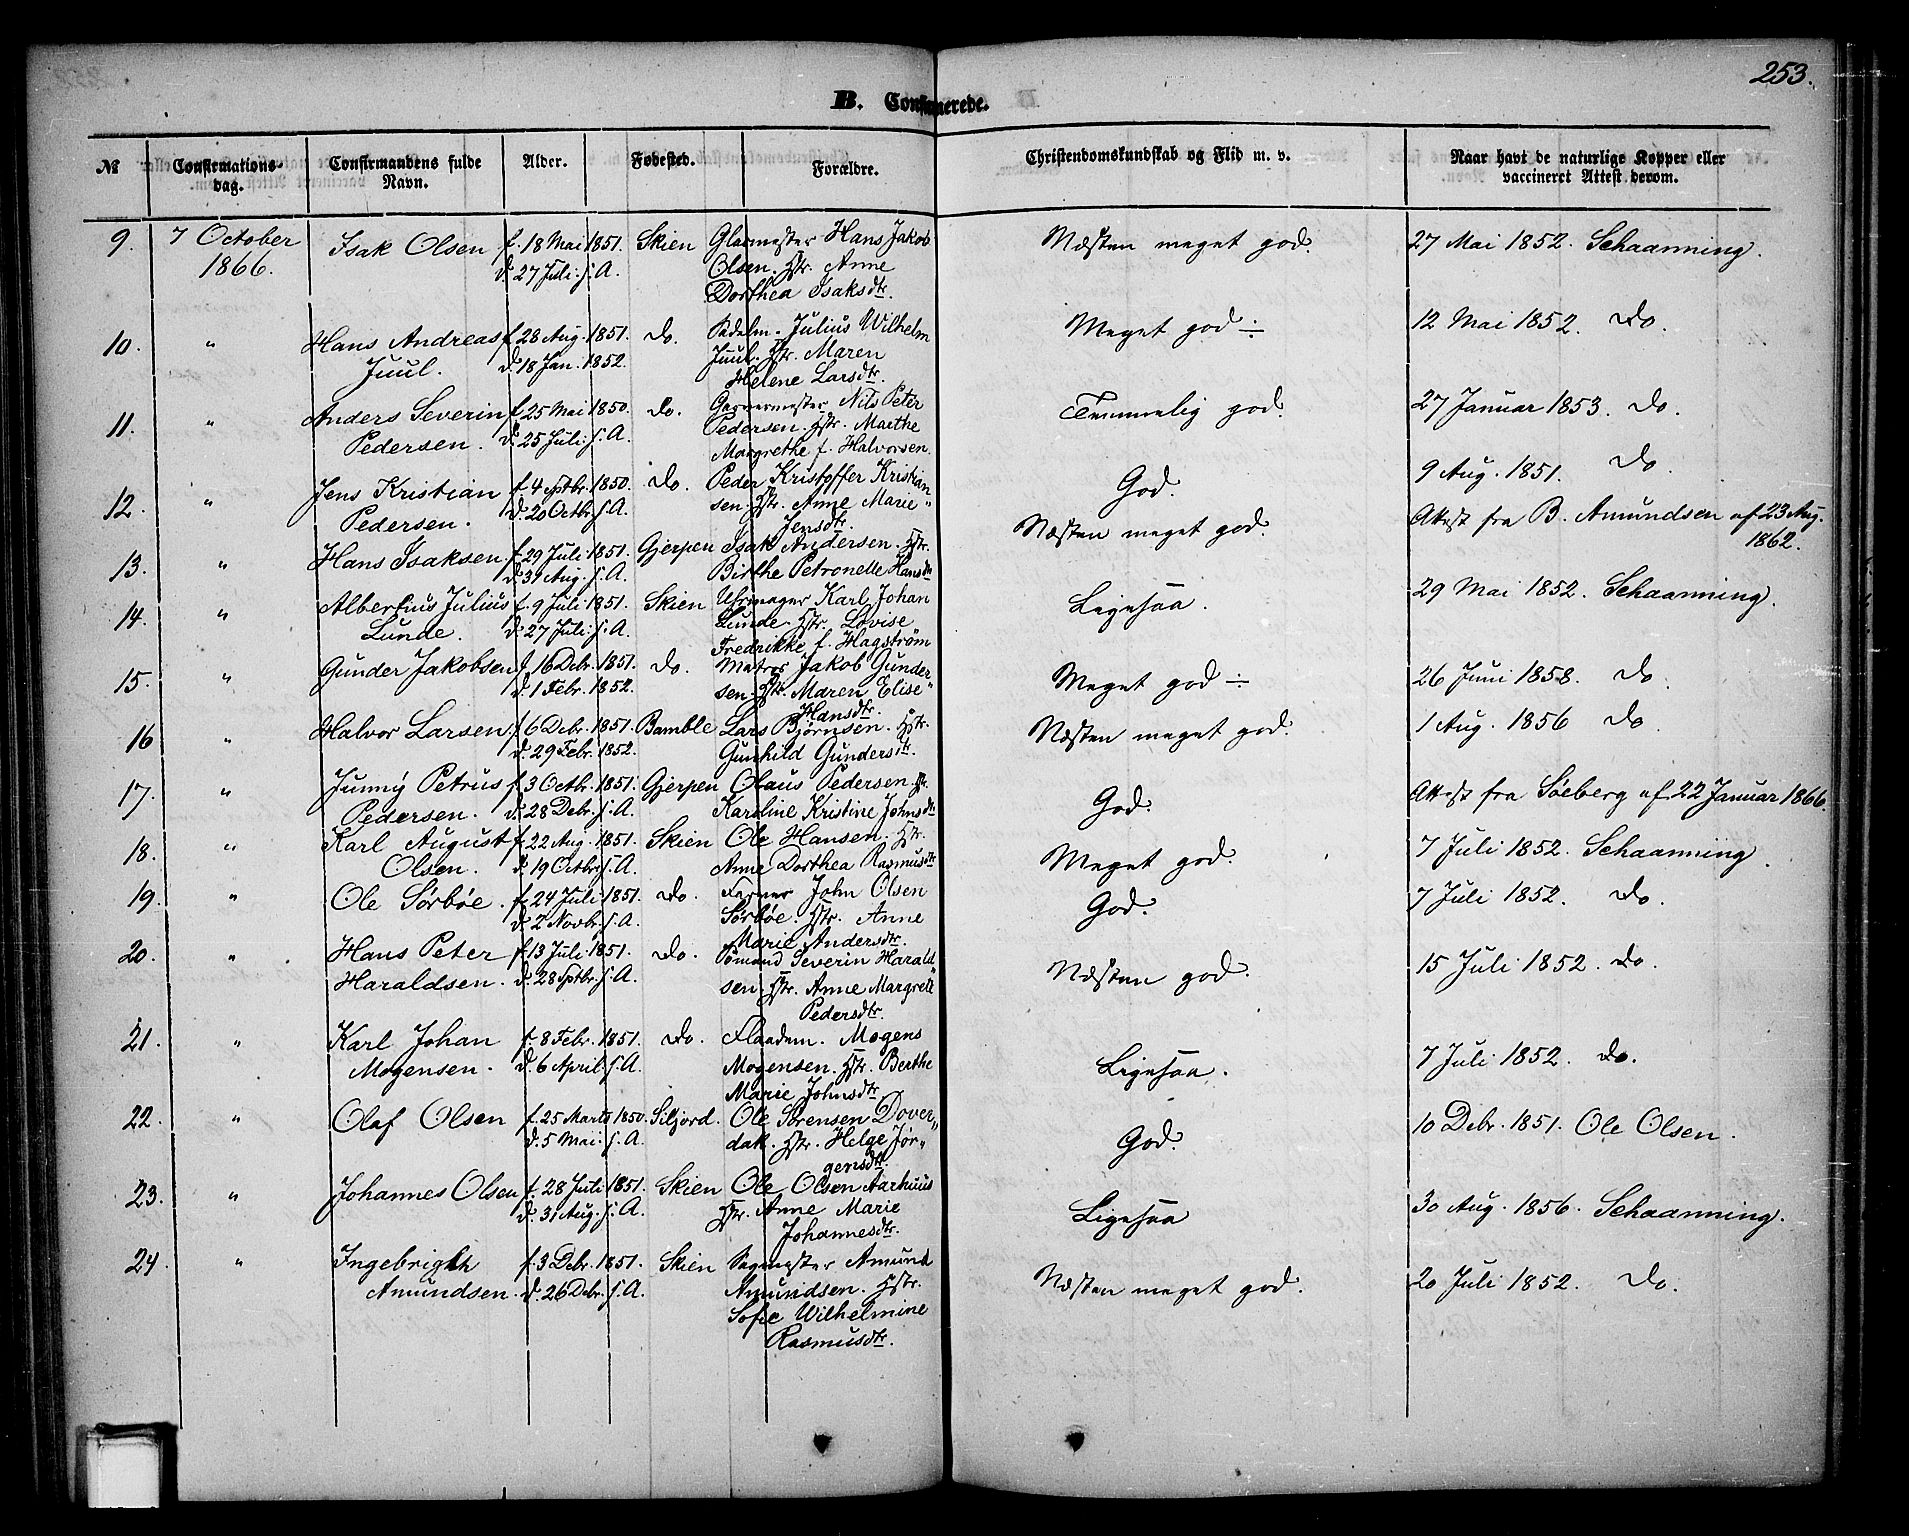 253.
B. Confirmerede.
№ Confirmations-dag. Confirmandens fulde Navn. Alder. Fødested. Forældre. Christendomskundskab og Flid m. v. Naar havt de naturlige Kopper eller vaccineret Attest derom.
9. 7 October 1866. Isak Olsen f. 18 Mai 1851. Skien Glarmester Hans Jakob Næsten meget god. 27 Mai 1852. Schaanning.
d. 27 Juli. s. A. Olsen. Hstr. Anne
Dorthea Isaksdtr.
10. " Hans Andreas f. 28 Aug. 1851. do. Julius Wilhelm Meget god ÷ 12 Mai 1852. do.
Juul. d. 18 Jan. 1852. Juul. Hstr. Maren
Helene Larsdtr.
11. " Anders Severin f. 25 Mai 1850. do. Garvermester Nils Peter Temmelig god. 27 Januar 1853. do.
Pedersen. d. 25 Juli. s. A. Pedersen. Hstr. Marthe
Margrethe f. Halvorsen.
12. " Jens Kristian f. 4 Septbr. 1850. do. Peder Kristoffer Kristian God. 9 Aug. 1851. do.
Pedersen. d. 20 Octbr. s. A. sen. Hstr. Anne Marie "
Jensdtr.
13. " Hans Isaksen f. 29 Juli 1851. Gjerpen Isak Andersen. Hstr. Næsten meget god. Attest fra B. Amundsen af 23 Aug.
d. 31 Aug. s. A. Birthe Petronelle Hansdtr 1862.
14. " Albertius Julius f. 9 Juli 1851. Skien Uhrmager Karl Johan Ligesaa. 29 Mai 1852. Schaanning.
Lunde. d. 27 Juli. s. A. Lunde. Hstr. Lovise
Fredrikke f. Hagström
15. " Gunder Jakobsen f. 16 Debr. 1851. do. Matros Jakob Gunder Meget god ÷ 26 Juni 1858. do.
d. 1 Febr. 1852. sen. Hstr. Maren Elise "
Hansdtr.
16 " Halvor Larsen f. 6 Debr. 1851. Bamble Lars Bjørnsen. Hstr. Næsten meget god. 1 Aug. 1856 do.
d. 29 Febr. 1852. Gunhild Gundersdtr.
17. " Junny Petrus f. 3 Octbr. 1851. Gjerpen Olaus Pedersen. Hstr. God. Attest fra Søeberg af 22 Januar 1866.
Pedersen. d. 28 Debr. s. A. Karoline Kristine Johnsdtr
18. " Karl August f. 22 Aug. 1851. Skien Ole Hansen. Hstr. Meget god. 7 Juli 1852. Schaanning.
Olsen. d. 19 Octbr. s. A. Anne Dorthea Rasmusdtr
19. " Ole Sørbøe. f. 24 Juli 1851. do. Farver John Olsen God. 7 Juli 1852. do.
d. 2 Novbr. s. A. Sørbøe. Hstr. Anne
Marie Andersdtr.
20. " Hans Peter f. 13 Juli 1851. do. Sømand Severin Harald Næsten god. 15 Juli 1852. do.
Haraldsen. d. 28 Septbr. s. A. sen. Hstr. Anne Margrete
Pedersdtr.
21. " Karl Johan f. 8 Febr. 1851. do. Flaadem. Mogens Ligesaa. 7 Juli 1852. do.
Mogensen. d. 6 April. s. A. Mogensen. Hstr. Berthe
Marie Johnsdtr
22. " Olaf Olsen f. 25 Marts 1850. Siljord. Ole Sørensen Dover" God. 10 Debr. 1851. Ole Olsen.
d. 5 Mai. s. A. dak. Hstr. Helge Jør"
gensdtr.
23. " Johannes Olsen f. 28 Juli 1851. Skien Ole Olsen Aarhuus Ligesaa 30 Aug. 1856. Schaanning.
d. 31 Aug. s. A. Hstr. Anne Marie
Johannesdtr.
24. " Ingebrigth f. 3 Debr. 1851. Skien Sagmester Amund Næsten meget god. 20 Juli 1852. do.
Amundsen. d. 26 Debr. s. A. Amundsen. Hstr.
Sofie Wilhelmine
Rasmusdtr.